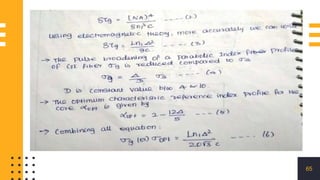 δTg = [NA]⁴ / 8n₁³c ---- (2)
Using electromagnetic theory, more accurately we can write
δTg = Ln₁Δ² / 8c ---- (3)
→ The pulse broadening of a parabolic Index fiber profile
of GI fiber σg is reduced compared to σs
σg = Δ/D σs --- (4)
D is constant value b/w 4 to 10.
→ The optimum characteristic reference index profile for the
core αopt is given by
αopt = 2 - 12Δ/5 --- (5)
→ Combining all equation:
σg (or) σopt = Ln₁Δ² / 20√3 c ---- (6)
65